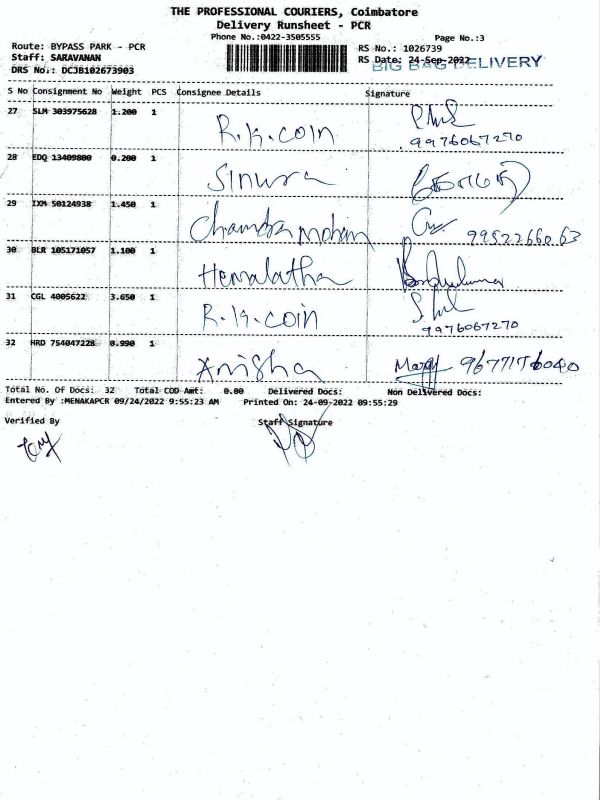 THE PROFESSIONAL COURIERS, Coimbatore
Delivery Runsheet - PCR
Phone No.:0422-3505555
Page No.:3
Route: BYPASS PARK - PCR
RS No.: 1026739
Staff: SARAVANAN
RS Date: 24-Sep-2022
BIG BAG DELIVERY
DRS No.: DCJB102673903
S No Consignment No Weight PCS Consignee Details Signature
27 SLM 303975628 1.200 1 R.K.COIN
9976067270
28 EDQ 13409800 0.200 1
29 IXM 50124938 1.450 1 Chandra mohan 9952266063
30 BLR 105171057 1.100 1 Hemalatha
31 CGL 4005622 3.650 1 R.K.COIN
9976067270
32 HRD 754047228 0.990 1 Anisha
Total No. Of Docs: 32 Total COD Amt: 0.00 Delivered Docs: Non Delivered Docs:
Entered By :MENAKAPCR 09/24/2022 9:55:23 AM Printed On: 24-09-2022 09:55:29
Verified By Staff Signature